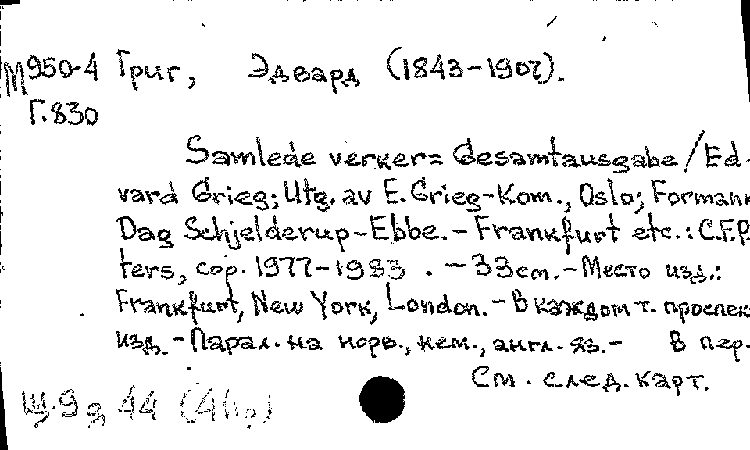 М950-4 Григ, Эдвард (1843-1907).
Г.830
Samlede verker= Gesamtausgabe/Ed-
vard Grieg; Utg. av E. Grieg-Kom., Oslo; Formann
Dag Schjelderup-Ebbe.- Frankfurt etc.: C.F.P
ters, cop. 1977-1983 . - 33см.- Место изд.:
Frankfurt, New York, London.- В каждом т. проспек
изд.- Парал. на норв., нем., англ. яз.- В пер.
См. след. карт.
44